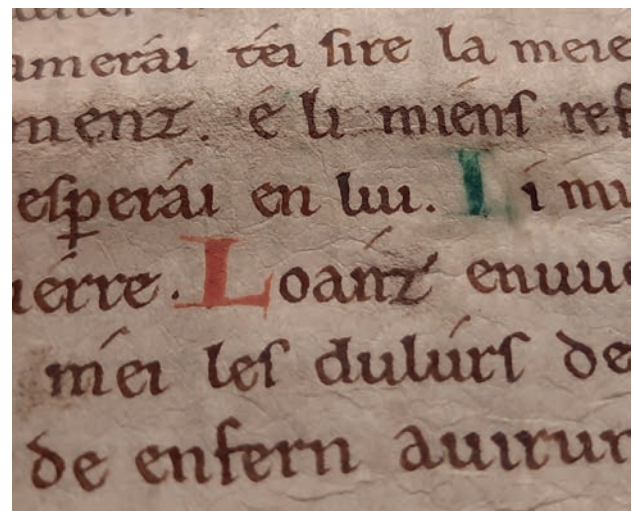 amerái téi sire la meie
ment. é li miens ref
esperái en lui. Li mu
iérre. Loánt enuue
méi les dulúrs de
de enfern auirur